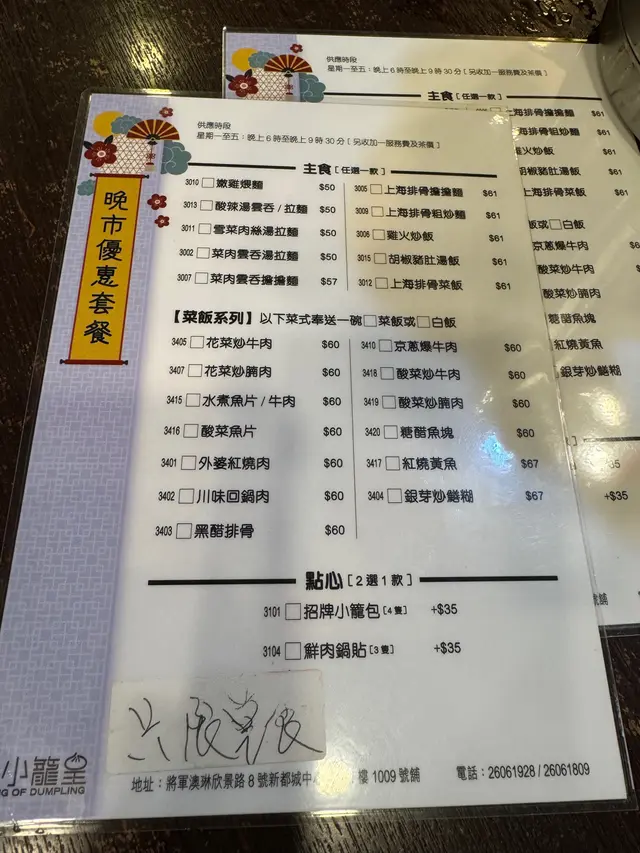 供應時段
星期一至五：晚上6時至晚上9時30分 [ 另收加一服務費及茶價 ]
主食 [ 任選一款 ]
上海排骨擔擔麵 $61
上海排骨粗炒麵 $61
雞火炒飯 $61
胡椒豬肚湯飯 $61
上海排骨菜飯 $61
飯或 白飯
京蔥爆牛肉
酸菜炒牛肉
酸菜炒腩肉
糖醋魚塊
紅燒黃魚
銀芽炒鱔糊
+$35
晚市優惠套餐
供應時段
星期一至五：晚上6時至晚上9時30分 [ 另收加一服務費及茶價 ]
主食 [ 任選一款 ]
3010 嫩雞煨麵 $50 3005 上海排骨擔擔麵 $61
3013 酸辣湯雲吞 / 拉麵 $50 3009 上海排骨粗炒麵 $61
3011 雪菜肉絲湯拉麵 $50 3006 雞火炒飯 $61
3002 菜肉雲吞湯拉麵 $50 3015 胡椒豬肚湯飯 $61
3007 菜肉雲吞擔擔麵 $57 3012 上海排骨菜飯 $61
【菜飯系列】以下菜式奉送一碗 菜飯或 白飯
3405 花菜炒牛肉 $60 3410 京蔥爆牛肉 $60
3407 花菜炒腩肉 $60 3418 酸菜炒牛肉 $60
3415 水煮魚片 / 牛肉 $60 3419 酸菜炒腩肉 $60
3416 酸菜魚片 $60 3420 糖醋魚塊 $60
3401 外婆紅燒肉 $60 3417 紅燒黃魚 $67
3402 川味回鍋肉 $60 3404 銀芽炒鱔糊 $67
3403 黑醋排骨 $60
點心 [ 2選1款 ]
3101 招牌小籠包 [ 4隻 ] +$35
3104 鮮肉鍋貼 [ 3隻 ] +$35
只限堂食
小籠皇
NG OF DUMPLING
地址：將軍澳琳欣景路8號新都城中 樓1009號舖 電話：26061928 / 26061809